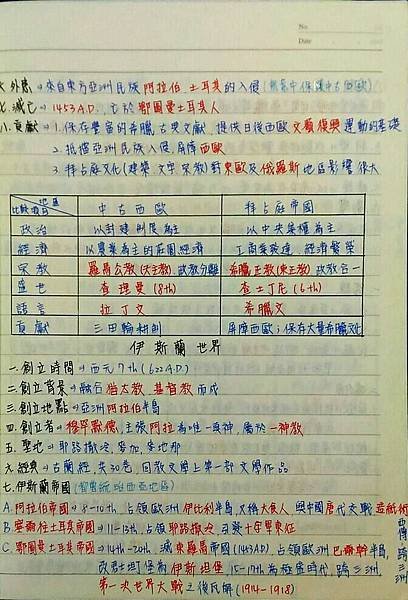 No.
Date
六.外患→來自東方亞洲民族阿拉伯、土耳其的入侵
七.滅亡→1453A.D. 亡於鄂圖曼土耳其人
八.貢獻→1.保存豐富的希臘古典文獻,提供日後西歐文藝復興運動的基礎
2.抵擋亞洲民族入侵,屏障西歐
3.拜占庭文化(建築、文字、宗教)對東歐及俄羅斯地區影響很大
地區 比較項目 中古西歐 拜占庭帝國
政治 以封建制度為主 以中央集權為主
經濟 以農業為主的莊園經濟 工商業發達,經濟繁榮
宗教 羅馬公教(天主教)政教分離 希臘正教(東正教)政教合一
盛世 查理曼(8th) 查士丁尼(6th)
語言 拉丁文 希臘文
貢獻 三田輪耕制 屏障西歐;保存大量希臘文化
伊斯蘭世界
一.創立時間→西元7th(622A.D.)
二.創立背景→融合猶太教、基督教而成
三.創立地點→亞洲阿拉伯半島
四.創立者→穆罕默德,主張阿拉為唯一真神,屬於一神教
五.聖地→耶路撒冷、麥加、麥地那
六.經典→古蘭經,共30卷,回教文學上第一部文學作品
七.伊斯蘭帝國
A.阿拉伯帝國→8-10th,占領歐洲伊比利半島,又稱大食人,與中國唐代交戰,造紙術西傳
B.塞爾柱土耳其帝國→11-13th,占領耶路撒冷,引發十字軍東征
C.鄂圖曼土耳其帝國→14th-20th,滅東羅馬帝國(1453AD),占領歐洲巴爾幹半島,跨三洲
改君士坦丁堡為伊斯坦堡,15-17th為極盛時代,跨三洲
第一次世界大戰之後瓦解(1914-1918)